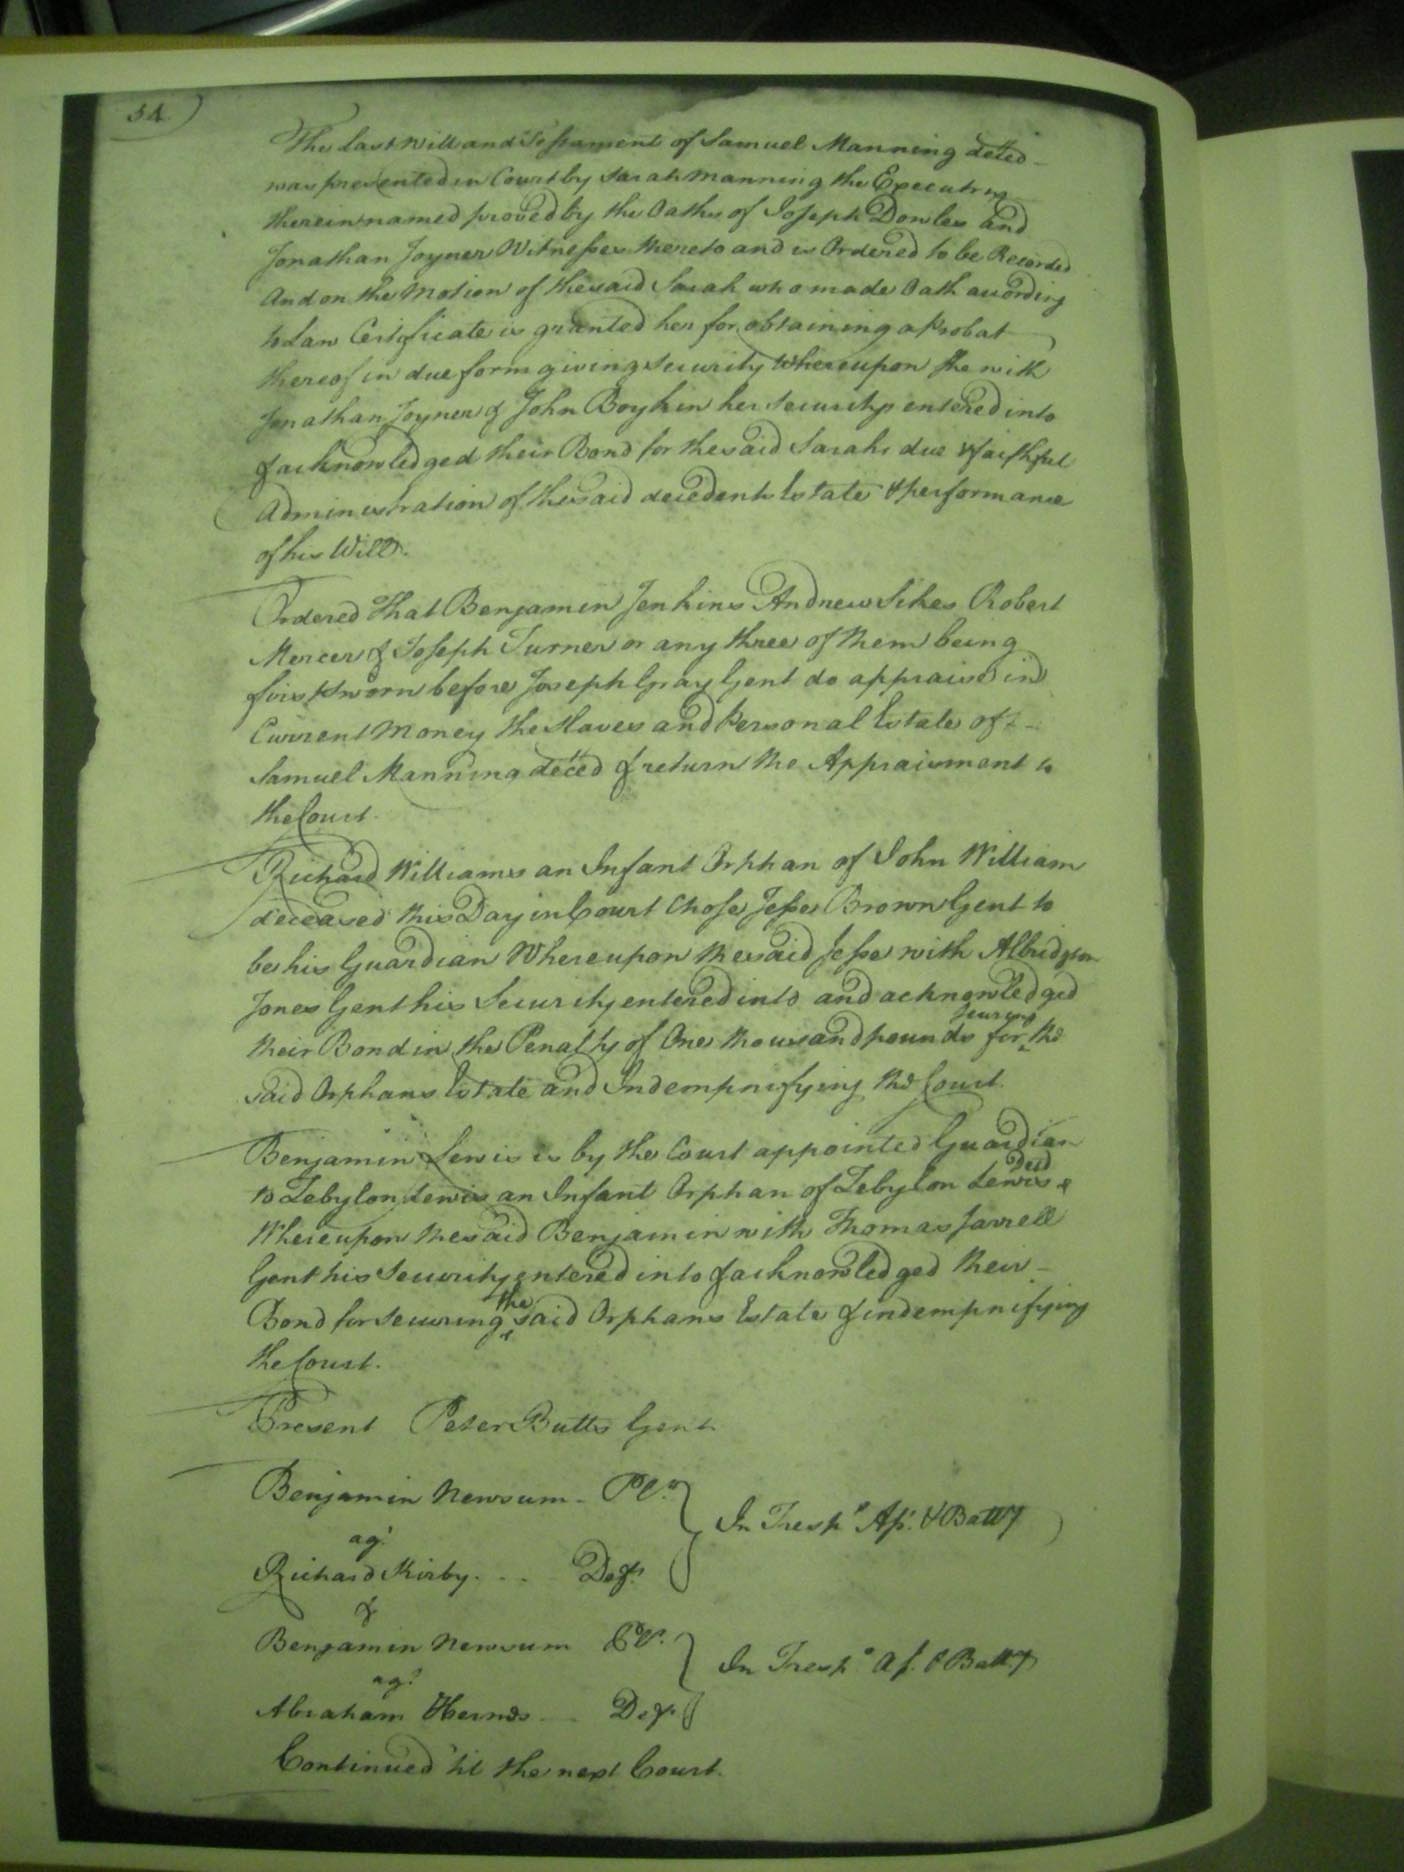 54
The last Will and Testament of Samuel Manning deced
was presented in Court by Sarah Manning the Executrix
therein named proved by the Oaths of Joseph Dowles and
Jonathan Joyner Witnesses thereto and is Ordered to be Recorded
And on the Motion of the said Sarah who made Oath according
to Law Certificate is granted her for obtaining a Probat
thereof in due form giving security Whereupon she with
Jonathan Joyner & John Boykin her securitys entered into
& acknowledged their Bond for the said Sarahs due & faithful
Administration of the said decedents Estate & performance
of his Will.
Ordered That Benjamin Jenkins Andrew Sikes Robert
Mercer & Joseph Turner or any three of them being
first sworn before Joseph Gray Gent do appraise in
Current Money the Slaves and Personal Estate of
Samuel Manning deced & return the Appraisment to
the Court.
Richard Williams an Infant Orphan of John William
deceased this Day in Court Chose Jesse Brown Gent to
be his Guardian Whereupon the said Jesse with Albridgton
Jones Gent his Security entered into and acknowledged
their Bond in the Penalty of One thousand pounds for securing the
said Orphans Estate and Indempnifying the Court.
Benjamin Lewis is by the Court appointed Guardian
to Zebylon Lewis an Infant Orphan of Zebylon Lewis Decd
Whereupon the said Benjamin with Thomas Jarrell
Gent his Security entered into & acknowledged their
Bond for securing the said Orphans Estate & indempnifying
the Court.
Present Peter Butts Gent.
Benjamin Newsum - Pl.
agt
Richard Kirby - - - Deft.
In Tresps As. & Batty
&
Benjamin Newsum Pl.
agt
Abraham - - Deft
In Tresps As. & Batty
Continued 'til the next Court.